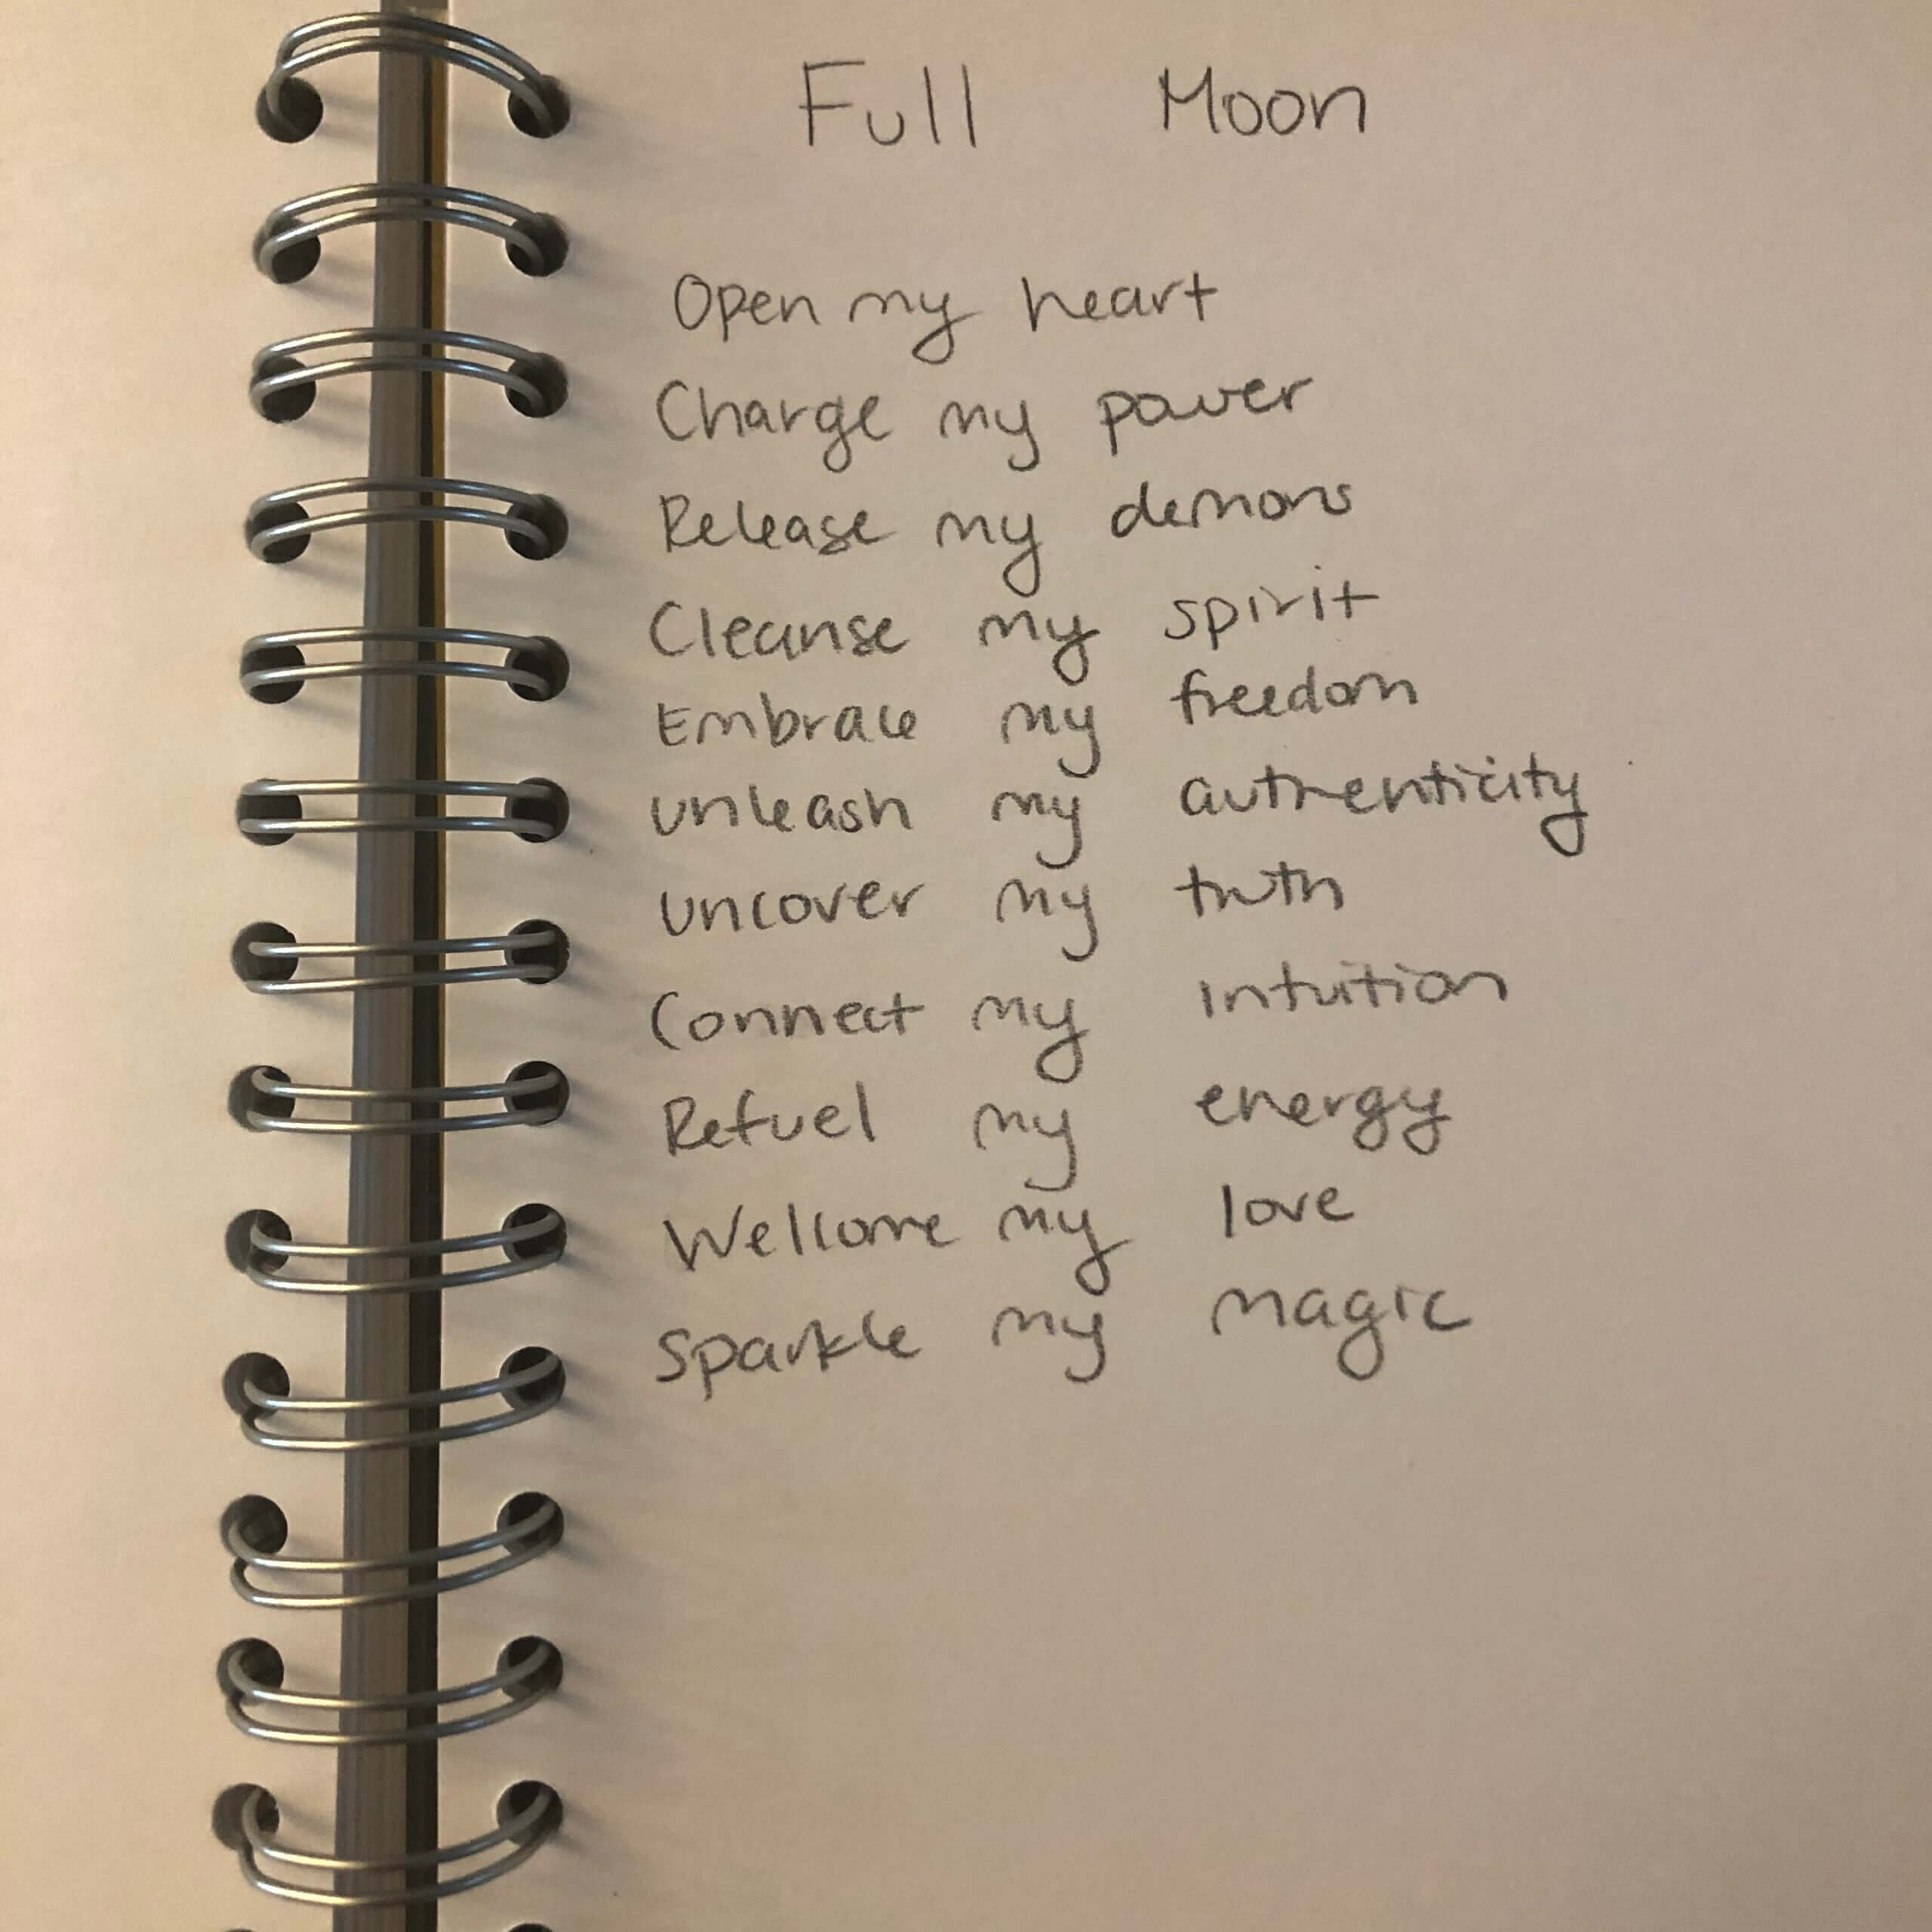 Full Moon
Open my heart
Charge my power
Release my demons
Cleanse my spirit
Embrace my freedom
unleash my authenticity
uncover my truth
Connect my intuition
Refuel my energy
Welcome my love
Sparkle my magic